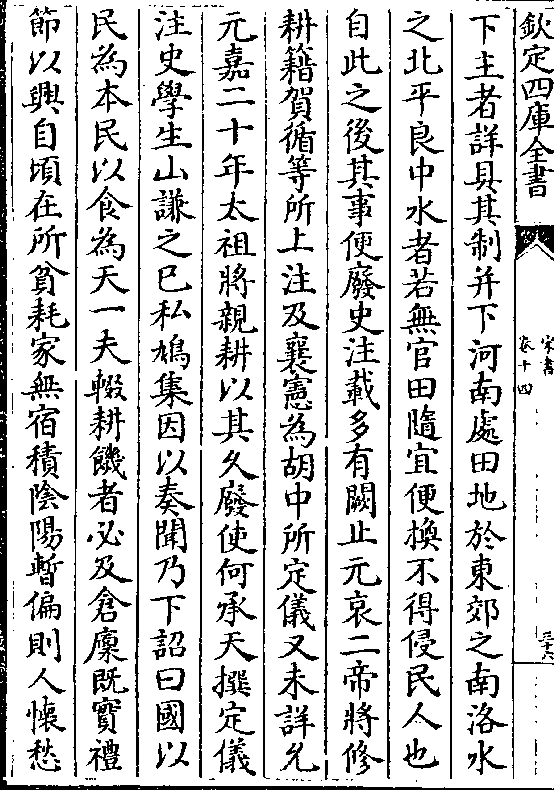 欽定四庫全書
宋書
卷十四
三十六
下主者詳具其制并下河南處田地於東郊之南洛水
之北平良中水者若無官田隨宜便換不得侵民人也
自此之後其事便廢史注載多有闕止元哀二帝將修
耕籍賀循等所上注及裴憲為胡中所定儀又未詳允
元嘉二十年太祖將親耕以其久廢使何承天撰定儀
注史學生山謙之已私鳩集因以奏聞乃下詔曰國以
民為本民以食為天一夫輟耕饑者必及倉廩既實禮
節以興自頃在所貧耗家無宿積陰陽暫偏則人懷愁